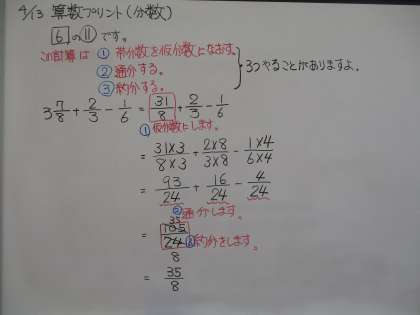 4/13 算数プリント(分数)
6の⑪です。
この計算は ① 帯分数を仮分数になおす。
② 通分する。
③ 約分する。
3つやることがありますよ。
3 7/8 + 2/3 - 1/6 = 31/8 + 2/3 - 1/6
① 仮分数にします。
= 31×3/8×3 + 2×8/3×8 - 1×4/6×4
= 93/24 + 16/24 - 4/24
② 通分します。
35
= 105/24 ③約分をします。
8
= 35/8